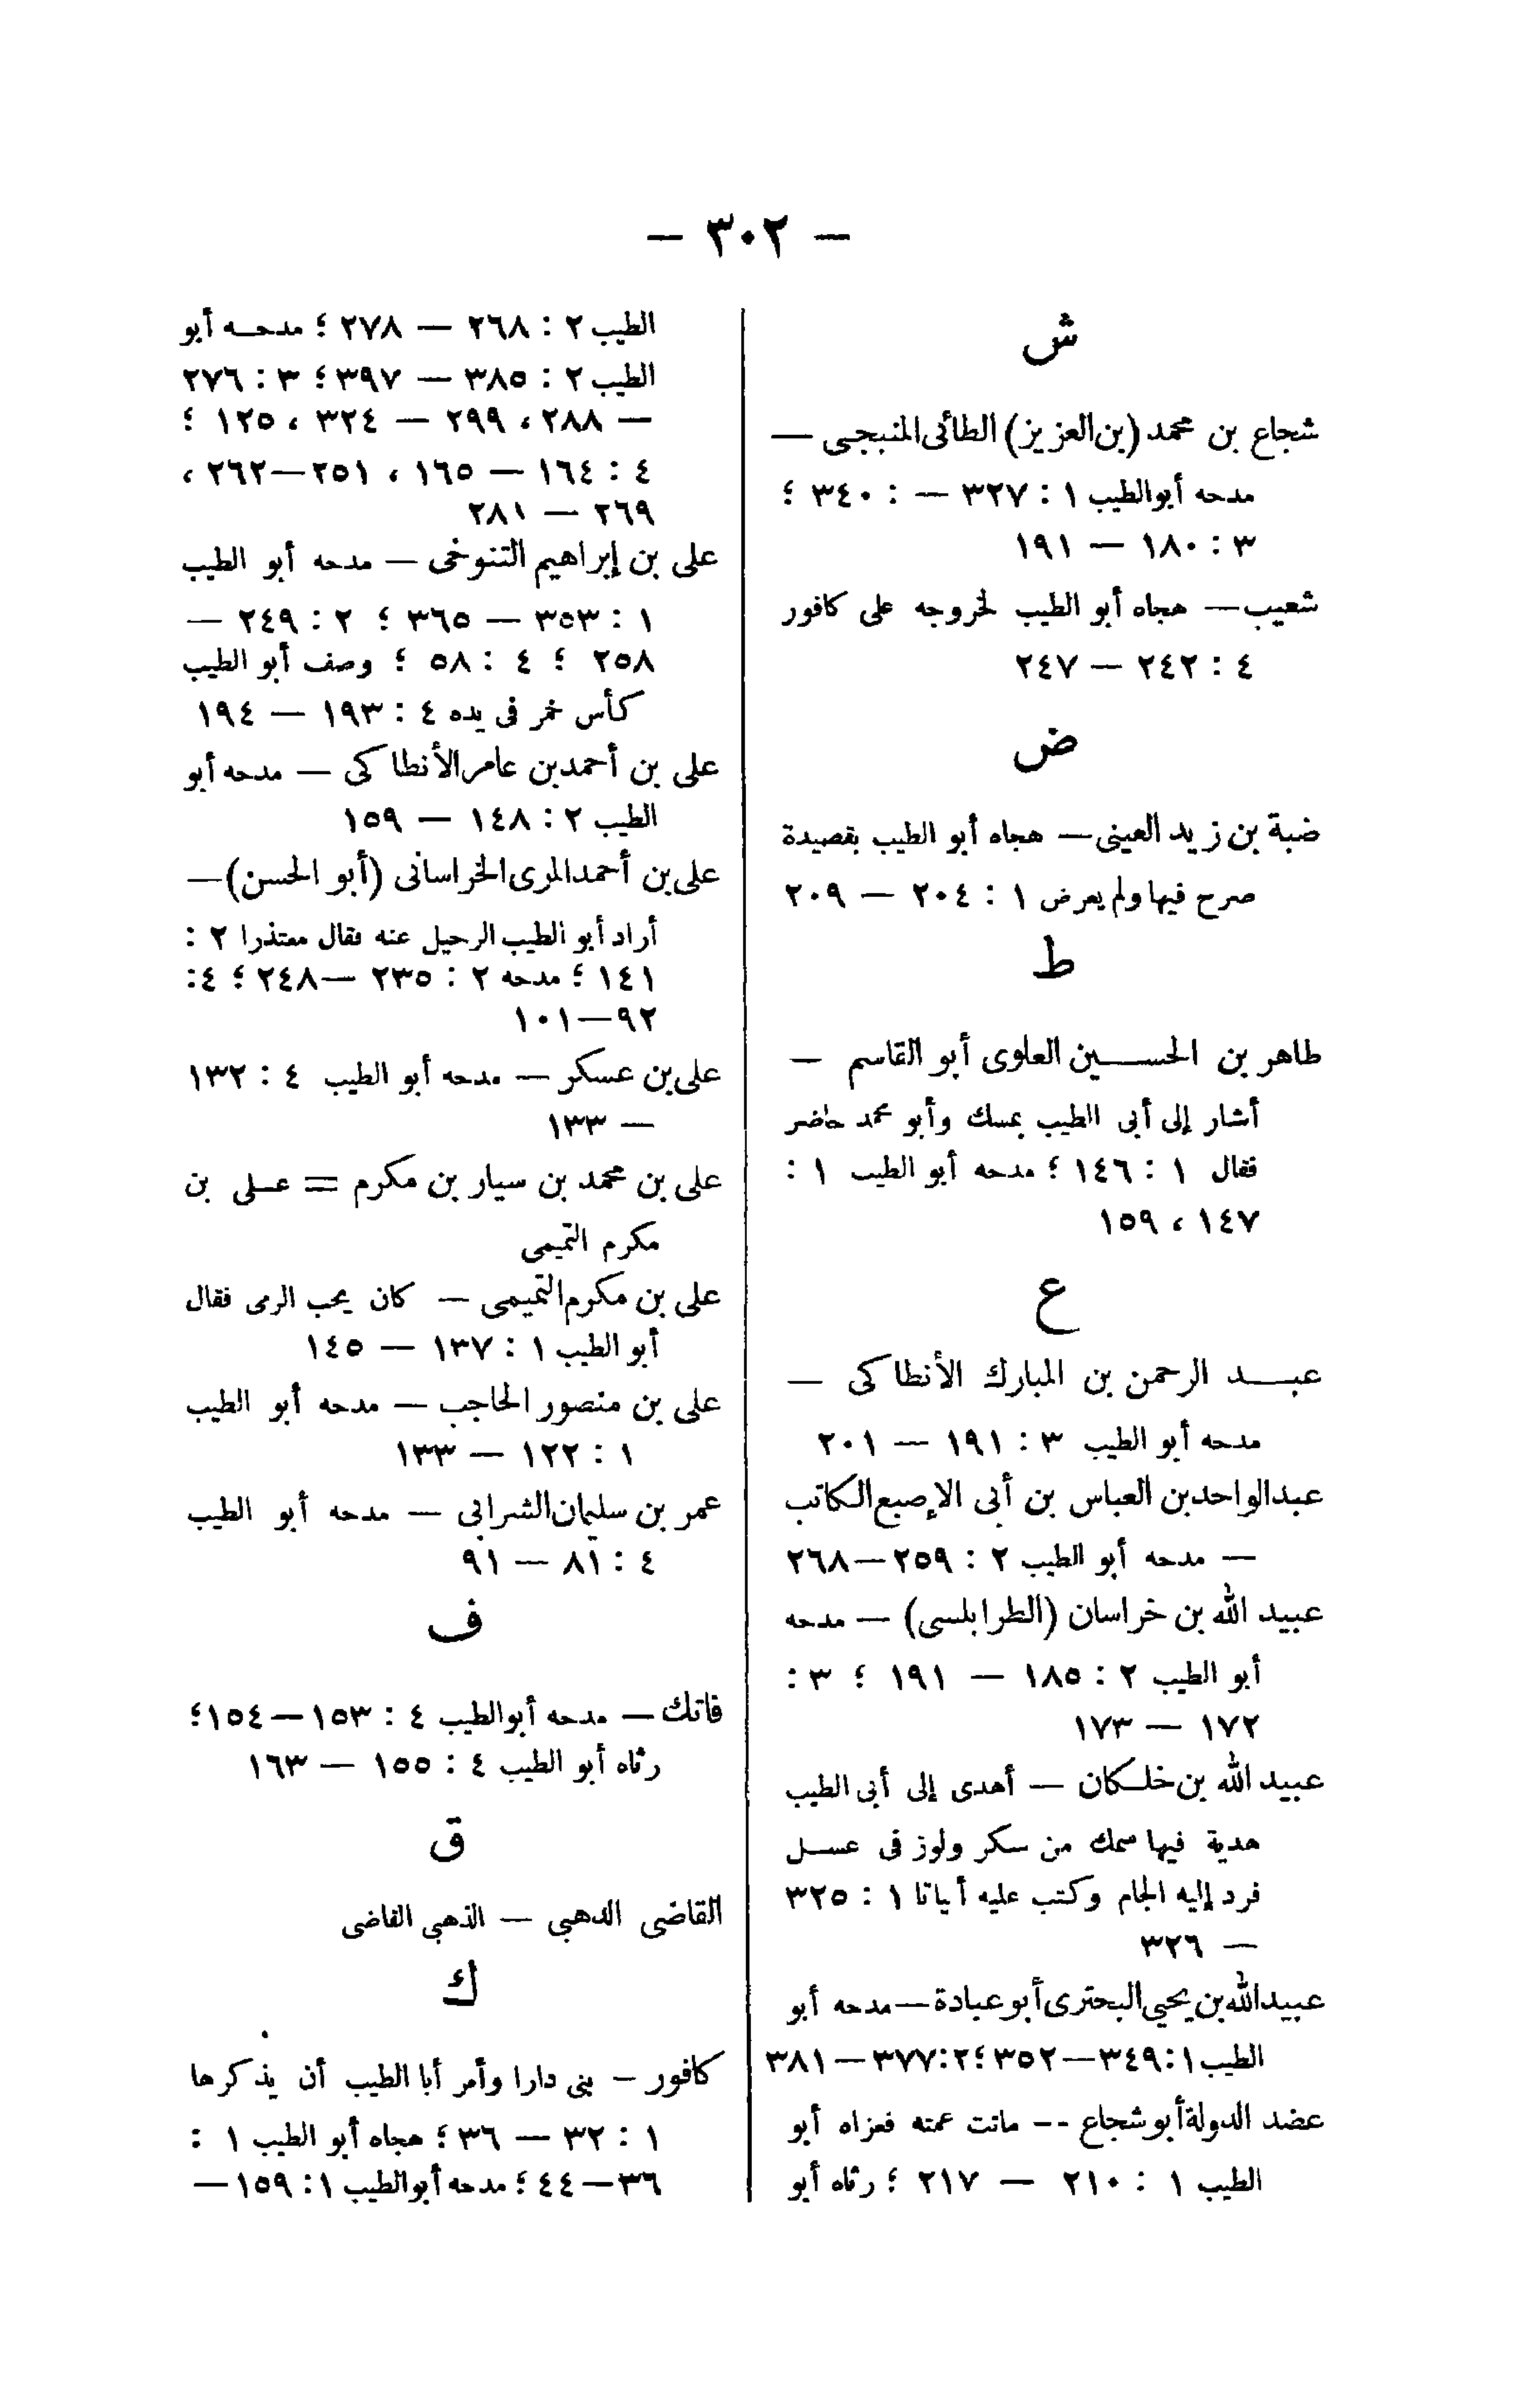 — ٣٠٢ —
ش
شجاع بن محمد (بن العزيز) الطائى المنبجى —
مدحه أبو الطيب ١ : ٣٢٧ — : ٣٤٠ ؛
٣ : ١٨٠ — ١٩١
شعيب — هجاه أبو الطيب لخروجه على كافور
٤ : ٢٤٢ — ٢٤٧
ض
ضبة بن زيد العينى — هجاه أبو الطيب بقصيدة
صرح فيها ولم يعرض ١ : ٢٠٤ — ٢٠٩
ط
طاهر بن الحسين العلوى أبو القاسم —
أشار إلى أبى الطيب بمسك وأبو محمد حاضر
فقال ١ : ١٤٦ ؛ مدحه أبو الطيب ١ :
١٤٧ ، ١٥٩
ع
عبد الرحمن بن المبارك الأنطاكى —
مدحه أبو الطيب ٣ : ١٩١ — ٢٠١
عبد الواحد بن العباس بن أبى الإصبع الكاتب
— مدحه أبو الطيب ٢ : ٢٥٩ — ٢٦٨
عبيد الله بن خراسان (الطرابلسى) — مدحه
أبو الطيب ٢ : ١٨٥ — ١٩١ ؛ ٣ :
١٧٢ — ١٧٣
عبيد الله بن خلكان — أهدى إلى أبى الطيب
هدية فيها سمك من سكر ولوز فى عسل
فرد إليه الجام وكتب عليه أبياتا ١ : ٣٢٥
— ٣٢٦
عبيد الله بن يحيى البحترى أبو عبادة — مدحه أبو
الطيب ١ : ٣٤٩ — ٣٥٢ ؛ ٢ : ٣٧٧ — ٣٨١
عضد الدولة أبو شجاع -- ماتت عمته فعزاه أبو
الطيب ١ : ٢١٠ — ٢١٧ ؛ رثاه أبو
الطيب ٢ : ٢٦٨ — ٢٧٨ ؛ مدحه أبو
الطيب ٢ : ٣٨٥ — ٣٩٧ ؛ ٣ : ٢٧٦
— ٢٨٨ ، ٢٩٩ — ٣٢٤ ، ١٢٥ ؛
٤ : ١٦٤ — ١٦٥ ، ٢٥١ — ٢٦٢ ،
٢٦٩ — ٢٨١
على بن إبراهيم التنوخى — مدحه أبو الطيب
١ : ٣٥٣ — ٣٦٥ ؛ ٢ : ٢٤٩ —
٢٥٨ ؛ ٤ : ٥٨ ؛ وصف أبو الطيب
كأس خمر فى يده ٤ : ١٩٣ — ١٩٤
على بن أحمد بن عامر الأنطاكى — مدحه أبو
الطيب ٢ : ١٤٨ — ١٥٩
على بن أحمد المرى الخراسانى (أبو الحسن) —
أراد أبو الطيب الرحيل عنه فقال معتذرا ٢ :
١٤١ ؛ مدحه ٢ : ٢٣٥ — ٢٤٨ ؛ ٤ :
٩٢ — ١٠١
على بن عسكر — مدحه أبو الطيب ٤ : ١٣٢
— ١٣٣
على بن محمد بن سيار بن مكرم = على بن
مكرم التميمى
على بن مكرم التميمى — كان يحب الرمى فقال
أبو الطيب ١ : ١٣٧ — ١٤٥
على بن منصور الحاجب — مدحه أبو الطيب
١ : ١٢٢ — ١٣٣
عمر بن سليمان الشرابى — مدحه أبو الطيب
٤ : ٨١ — ٩١
ف
فاتك — مدحه أبو الطيب ٤ : ١٥٣ — ١٥٤ ؛
رثاه أبو الطيب ٤ : ١٥٥ — ١٦٣
ق
القاضى الدهبى — الذهبى القاضى
ك
كافور — بنى دارا وأمر أبا الطيب أن يذكرها
١ : ٣٢ — ٣٦ ؛ هجاه أبو الطيب ١ :
٣٦ — ٤٤ ؛ مدحه أبو الطيب ١ : ١٥٩ —